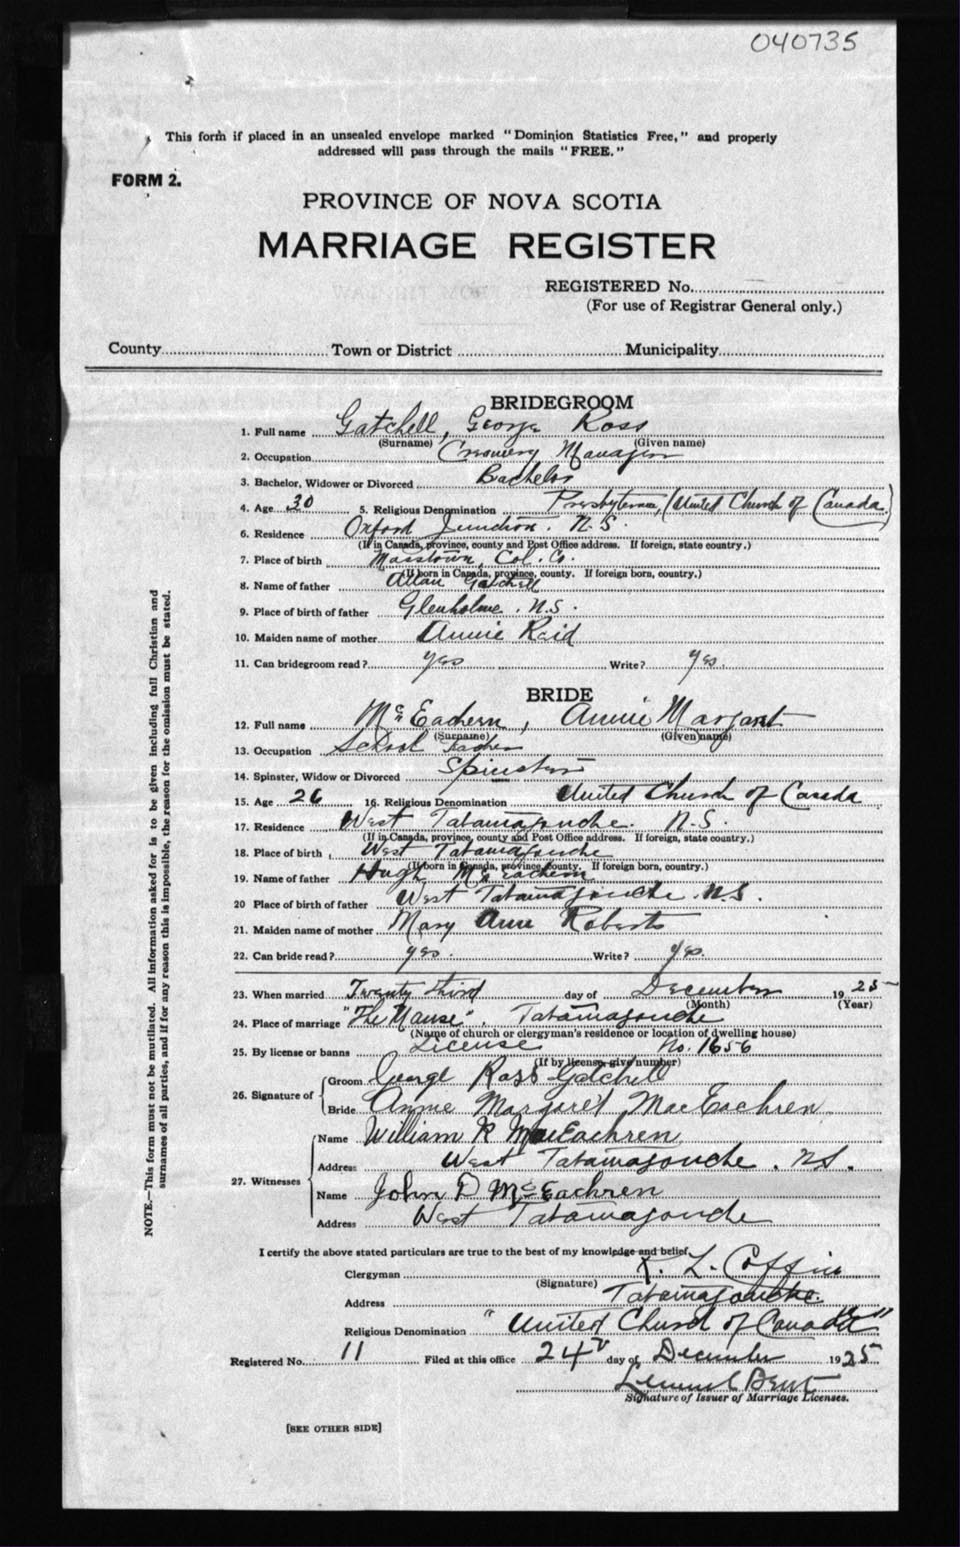 040735
This form if placed in an unsealed envelope marked "Dominion Statistics Free," and properly
addressed will pass through the mails "FREE."
FORM 2.
PROVINCE OF NOVA SCOTIA
MARRIAGE REGISTER
REGISTERED No.
(For use of Registrar General only.)
County Town or District Municipality
BRIDEGROOM
1. Full name Gatchell, George Ross
(Surname) (Given name)
2. Occupation Creamery Manager
3. Bachelor, Widower or Divorced Bachelor
4. Age 30 5. Religious Denomination Presbyterian, (United Church of Canada.)
6. Residence Oxford Junction. N.S.
(If in Canada, province, county and Post Office address. If foreign, state country.)
7. Place of birth Masstown, Col. Co.
(If born in Canada, province, county. If foreign born, country.)
8. Name of father Allan Gatchell
9. Place of birth of father Glenholme. N.S.
10. Maiden name of mother Annie Raid
11. Can bridegroom read? yes Write? Yes.
BRIDE
12. Full name McEachern, Annie Margaret
(Surname) (Given name)
13. Occupation School Teacher
14. Spinster, Widow or Divorced Spinster
15. Age 26 16. Religious Denomination United Church of Canada
17. Residence West Tatamagouche. N.S.
(If in Canada, province, county and Post Office address. If foreign, state country.)
18. Place of birth West Tatamagouche
(If born in Canada, province, county. If foreign born, country.)
19. Name of father Hugh McEachern
20 Place of birth of father West Tatamagouche. N.S.
21. Maiden name of mother Mary Ann Roberts
22. Can bride read? yes. Write? yes.
23. When married Twenty third day of December 1925
(Month) (Year)
24. Place of marriage "The Manse", Tatamagouche
(Name of church or clergyman's residence or location of dwelling house)
25. By license or banns License No. 1656
(If by license, give number)
26. Signature of Groom George Ross Gatchell
Bride Annie Margaret MacEachren
27. Witnesses Name William R MacEachren
Address West Tatamagouche. N.S.
Name John D McEachren
Address West Tatamagouche
I certify the above stated particulars are true to the best of my knowledge and belief.
Clergyman L. Coffin
(Signature)
Address Tatamagouche.
Religious Denomination "United Church of Canada"
Registered No. 11 Filed at this office 24 day of December 1925
Lemuel Bent
Signature of Issuer of Marriage Licenses.
[SEE OTHER SIDE]
NOTE.—This form must not be mutilated. All information asked for is to be given including full Christian and
surnames of all parties, and if for any reason this is impossible, the reason for the omission must be stated.